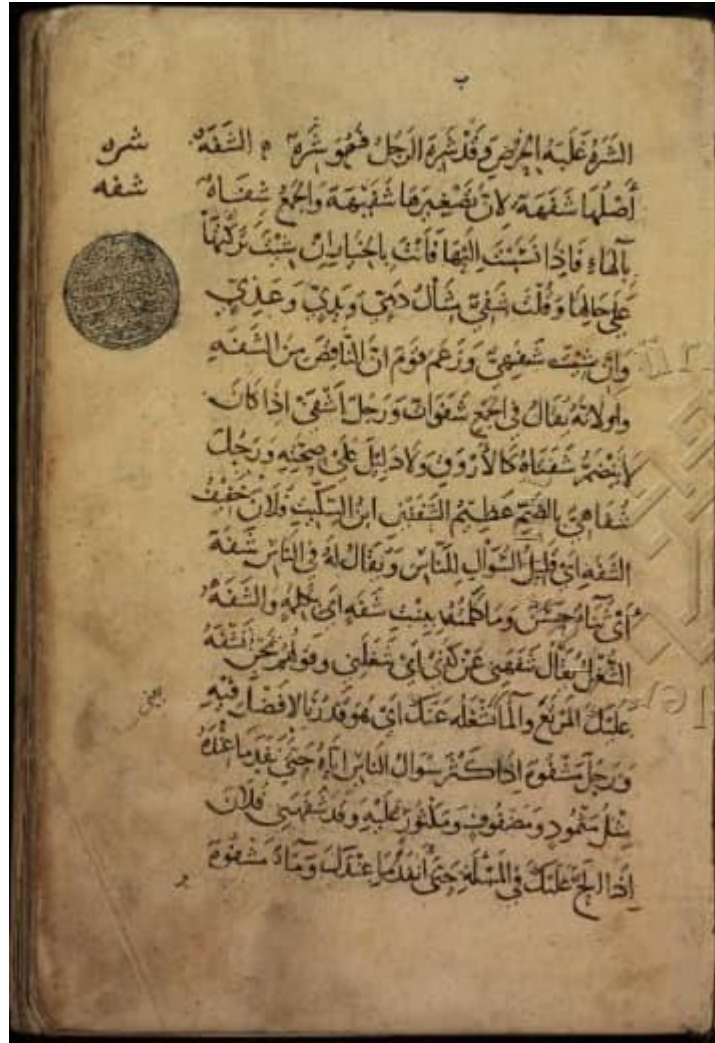 ب
الشَّرَهُ غَلَبَةُ الحِرْصِ وَقَدْ شَرِهَ الرَّجُلُ فَهُوَ شَرِهٌ ۞ الشَّفَةُ
شره
أَصْلُهَا شَفَهَةٌ لِأَنَّ تَصْغِيرَهَا شُفَيْهَةٌ وَالجَمْعُ شِفَاهٌ
شفه
بِالهَاءِ فَإِذَا نَسَبْتَ إِلَيْهَا فَأَنْتَ بِالخِيَارِ إِنْ شِئْتَ تَرَكْتَهَا
عَلَى حَالِهَا وَقُلْتَ شَفِيٌّ مِثَالُ دَمِيٍّ وَيَدِيٍّ وَعَدِيٍّ
وَإِنْ شِئْتَ شَفَهِيٌّ وَزَعَمَ قَوْمٌ أَنَّ النَّاقِصَ مِنَ الشَّفَةِ
وَاوٌ لِأَنَّهُ يُقَالُ فِي الجَمْعِ شَفَوَاتٌ وَرَجُلٌ أَشْفَى إِذَا كَانَ
لَا يَنْضَمُّ شَفَتَاهُ كَالأَرْوَقِ وَلَا دَلِيلَ عَلَى صِحَّتِهِ وَرَجُلٌ
شُفَاهِيٌّ بِالضَّمِّ عَظِيمُ الشَّفَتَيْنِ ابْنُ السِّكِّيتِ فُلَانٌ خَفِيفُ
الشَّفَةِ أَيْ قَلِيلُ السُّؤَالِ لِلنَّاسِ وَيُقَالُ لَهُ فِي النَّاسِ شَفَةٌ
أَيْ ثَنَاءٌ حَسَنٌ وَمَا كَلَّمْتُهُ بِبِنْتِ شَفَةٍ أَيْ بِكَلِمَةٍ وَالشَّفْهُ
الشُّغْلُ يُقَالُ شَفَهَنِي عَنْ كَذَا أَيْ شَغَلَنِي وَقَوْلُهُمْ نَحْنُ نَشْفَهُ
عَلَيْكَ المَرْتَعَ وَالمَاءَ نَشْغَلُهُ عَنْكَ أَيْ هُوَ قَدْرُنَا لَا فَضْلَ فِيهِ
وَرَجُلٌ مَشْفُوهٌ إِذَا كَثُرَ سُؤَالُ النَّاسِ إِيَّاهُ حَتَّى نَفِدَ مَا عِنْدَهُ
مِثْلُ مَثْمُودٍ وَمَضْفُوفٍ وَمَكْثُورٍ عَلَيْهِ وَقَدْ شَفَهَنِي فُلَانٌ
إِذَا أَلَحَّ عَلَيْكَ فِي المَسْئَلَةِ حَتَّى أَنْفَدَ مَا عِنْدَكَ وَمَاءٌ مَشْفُوهٌ